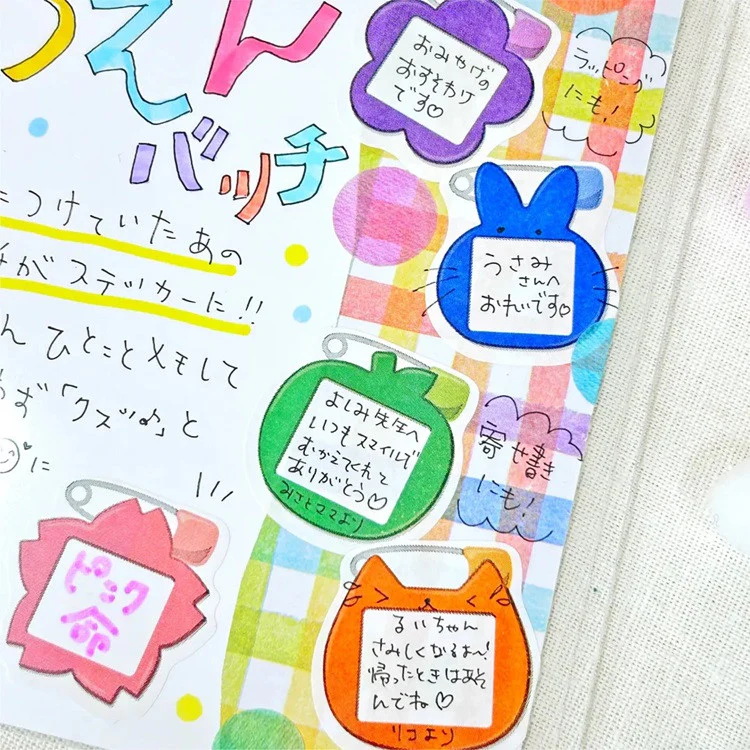 うえん
バッチ
につけていたあの
がステッカーに!!
ひとことメモして
「クスッ♪」と
に
おみやげの
おすそわけ
です♡
ラッピング
にも!
うさみ
さんへ
おれいです♡
よしみ先生へ
いつもスマイルで
むかえてくれて
ありがとう♡
みさとママより
寄せ書き
にも!
ピック
命
るいちゃん
さみしくなるよ〜!
帰ったときはあそ
んでね♡
リコより